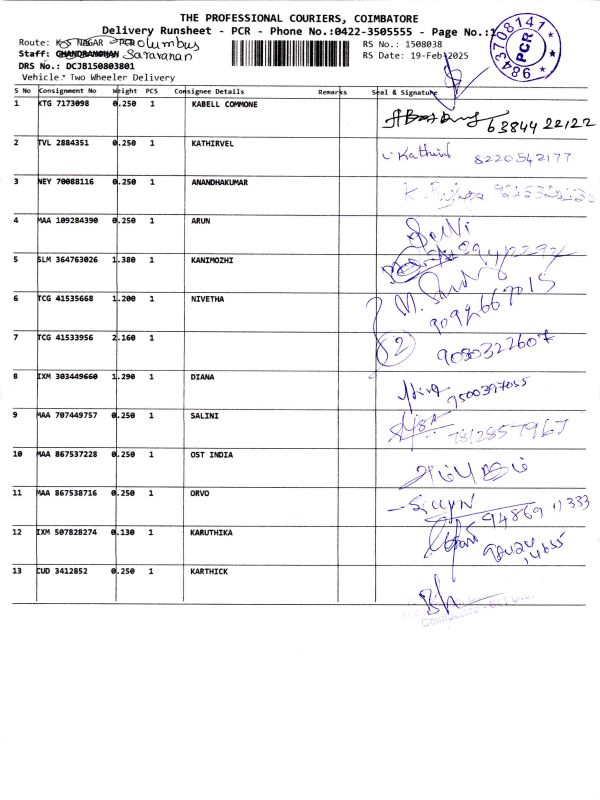 THE PROFESSIONAL COURIERS, COIMBATORE
Delivery Runsheet - PCR - Phone No.:0422-3505555 - Page No.:1
Route: K S NAGAR - PCR Columbus
RS No.: 1508038
Staff: CHANDRAMOHAN Saravanan
RS Date: 19-Feb-2025
DRS No.: DCJB150803801
Vehicle: Two Wheeler Delivery
9843708141
PCR
S No Consignment No Weight PCS Consignee Details Remarks Seal & Signature
1 KTG 7173098 0.250 1 KABELL COMMONE
63844 22122
2 TVL 2884351 0.250 1 KATHIRVEL
Kathir 8220542177
3 NEY 70088116 0.250 1 ANANDHAKUMAR
4 MAA 109284390 0.250 1 ARUN
Selvi
5 SLM 364763026 1.380 1 KANIMOZHI
6 TCG 41535668 1.200 1 NIVETHA
9092667015
7 TCG 41533956 2.160 1
2 9080322607
8 IXM 303449660 1.290 1 DIANA
7500397055
9 MAA 707449757 0.250 1 SALINI
7812857967
10 MAA 867537228 0.250 1 OST INDIA
11 MAA 867538716 0.250 1 ORVO
94869 11333
12 IXM 507828274 0.130 1 KARUTHIKA
13 CUD 3412852 0.250 1 KARTHICK